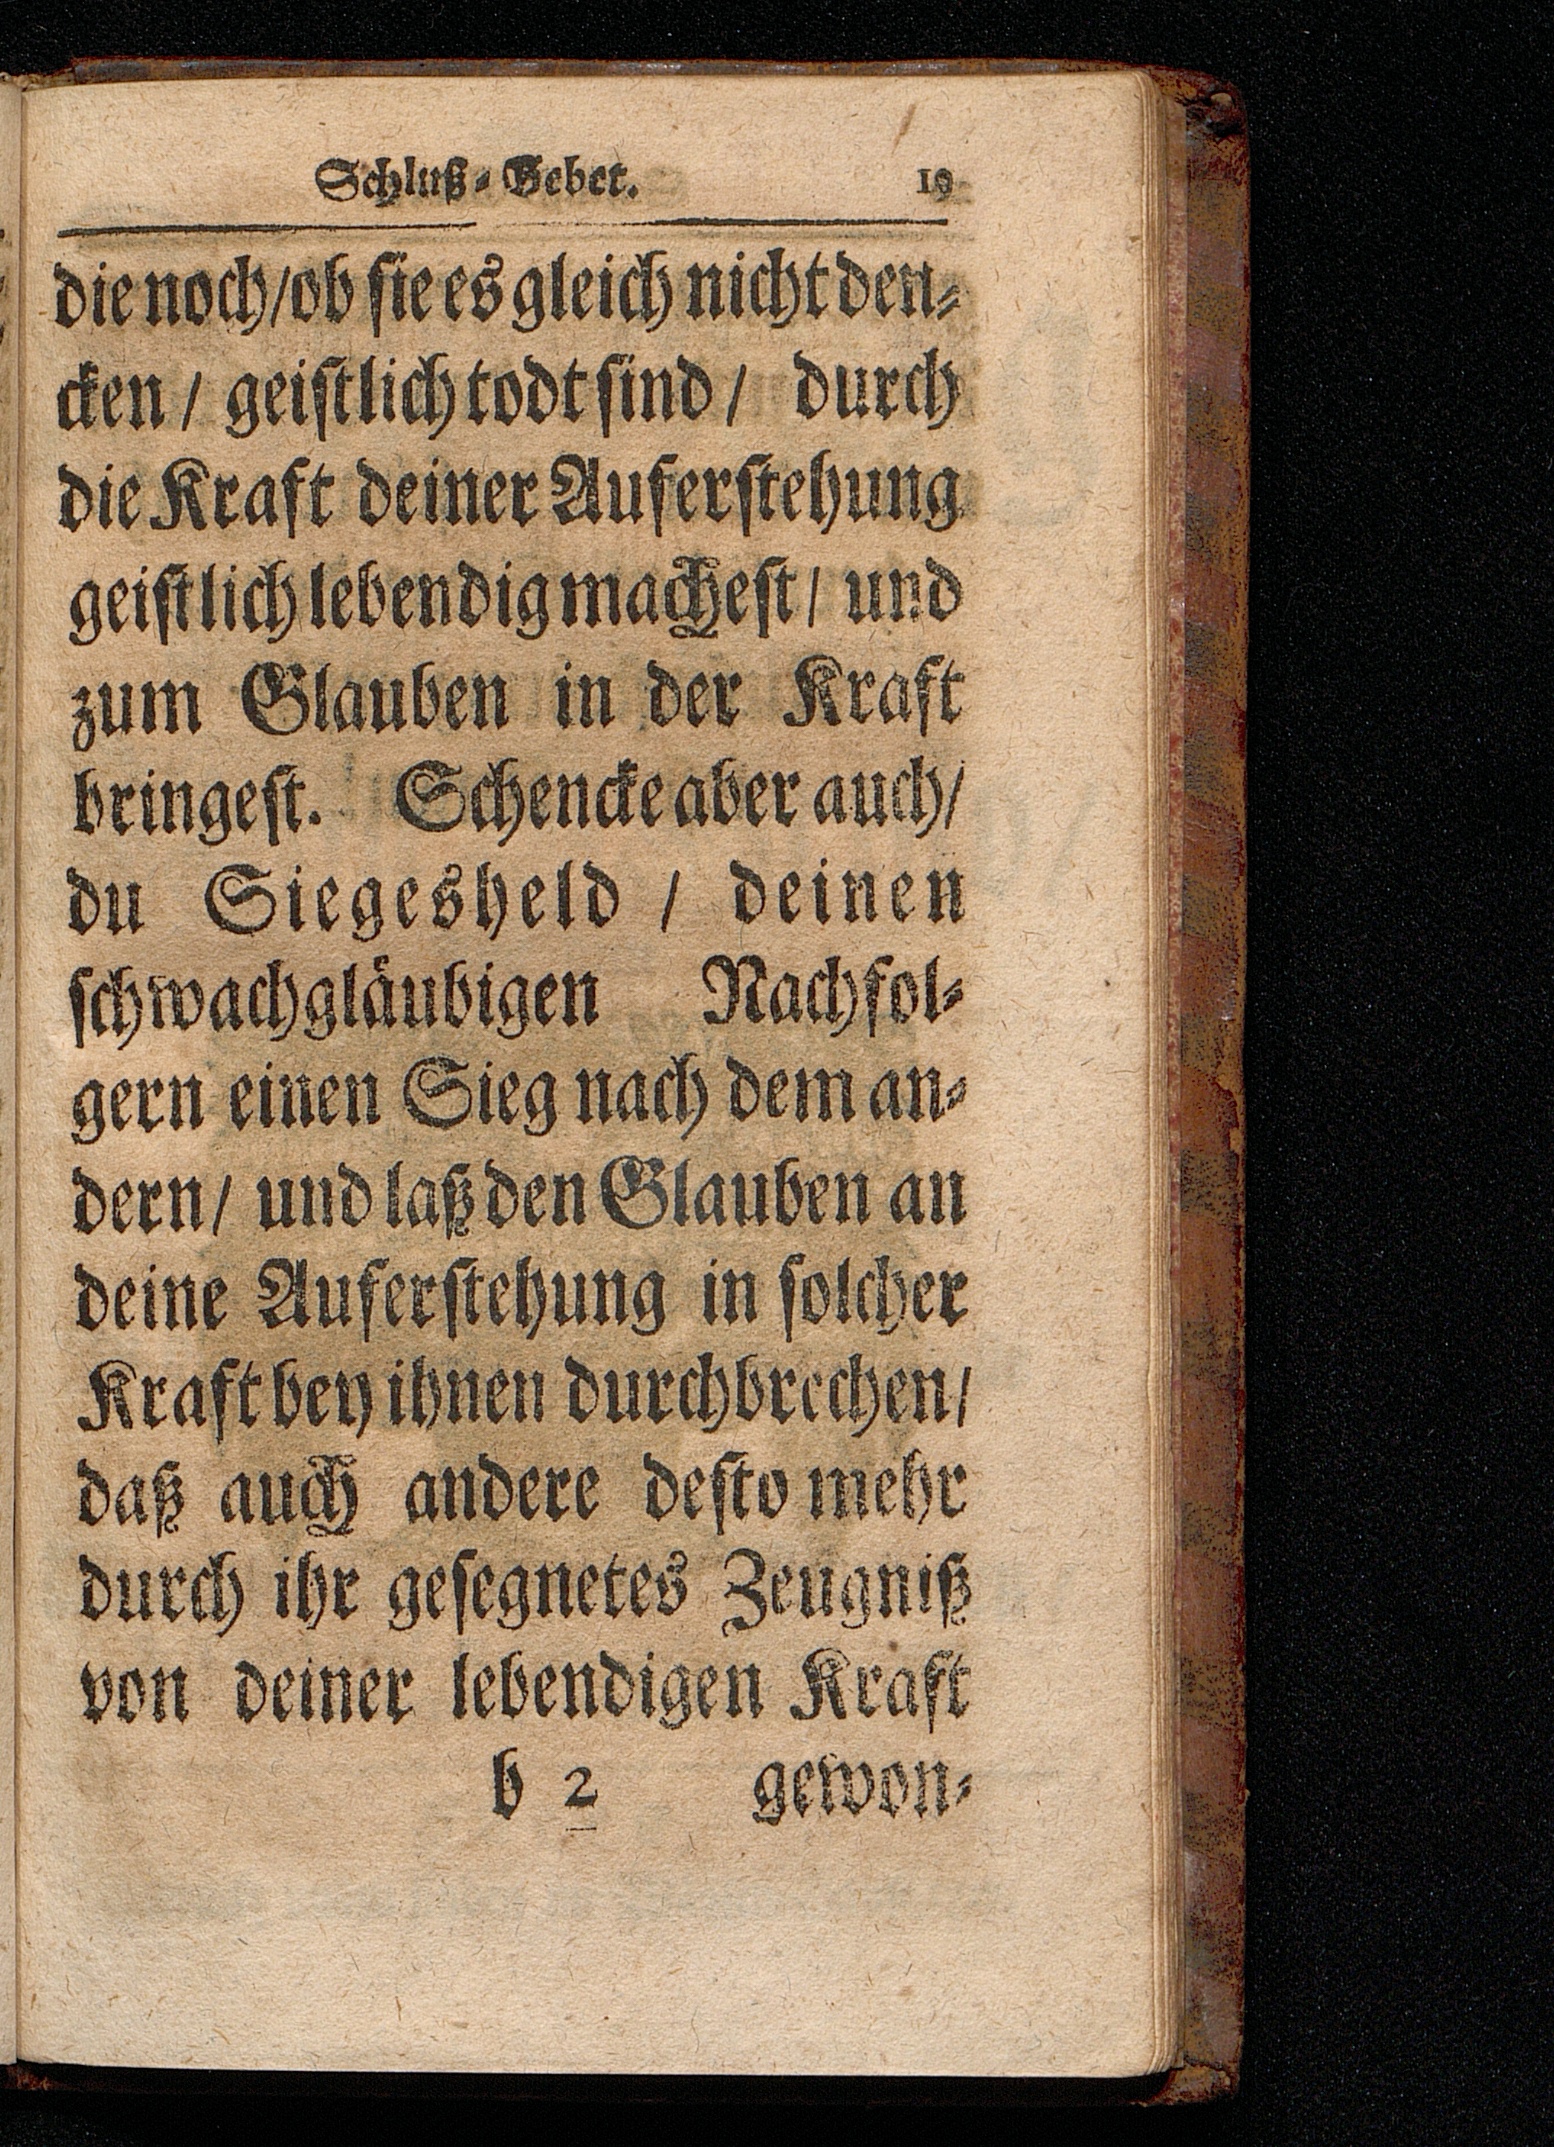 Schluß-Gebet. 19
die noch/ob sie es gleich nicht den-
cken / geistlich todt sind / durch
die Kraft deiner Auferstehung
geistlich lebendig machest / und
zum Glauben in der Kraft
bringest. Schencke aber auch/
du Siegesheld / deinen
schwachgläubigen Nachfol-
gern einen Sieg nach dem an-
dern/ und laß den Glauben an
deine Auferstehung in solcher
Kraft bey ihnen durchbrechen/
daß auch andere desto mehr
durch ihr gesegnetes Zeugniß
von deiner lebendigen Kraft
b 2 gewon-